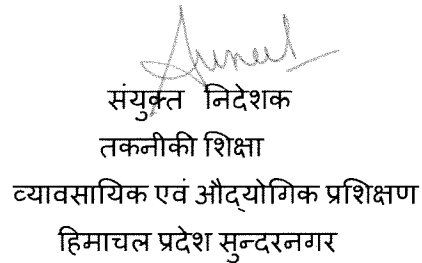 संयुक्त निदेशक
तकनीकी शिक्षा
व्यावसायिक एवं औद्योगिक प्रशिक्षण
हिमाचल प्रदेश सुन्दरनगर